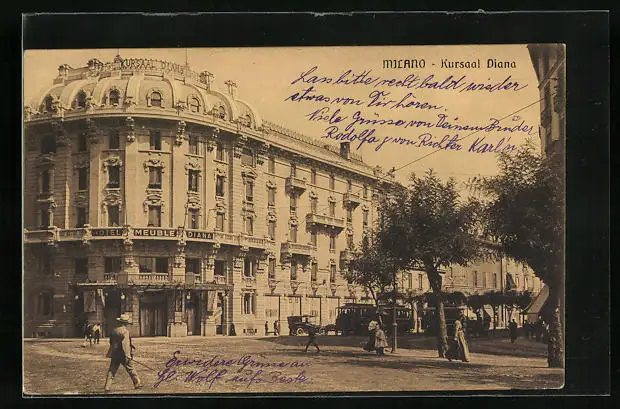 MILANO - Kursaal Diana
Lass bitte recht bald wieder
etwas von Dir hören.
Viele Grüsse von Deinem Bruder
Rudolf a/ von Richter Karl
HOTEL MEUBLÉ DIANA
Erwiedere Grüsse an
Wolf aufs Beste